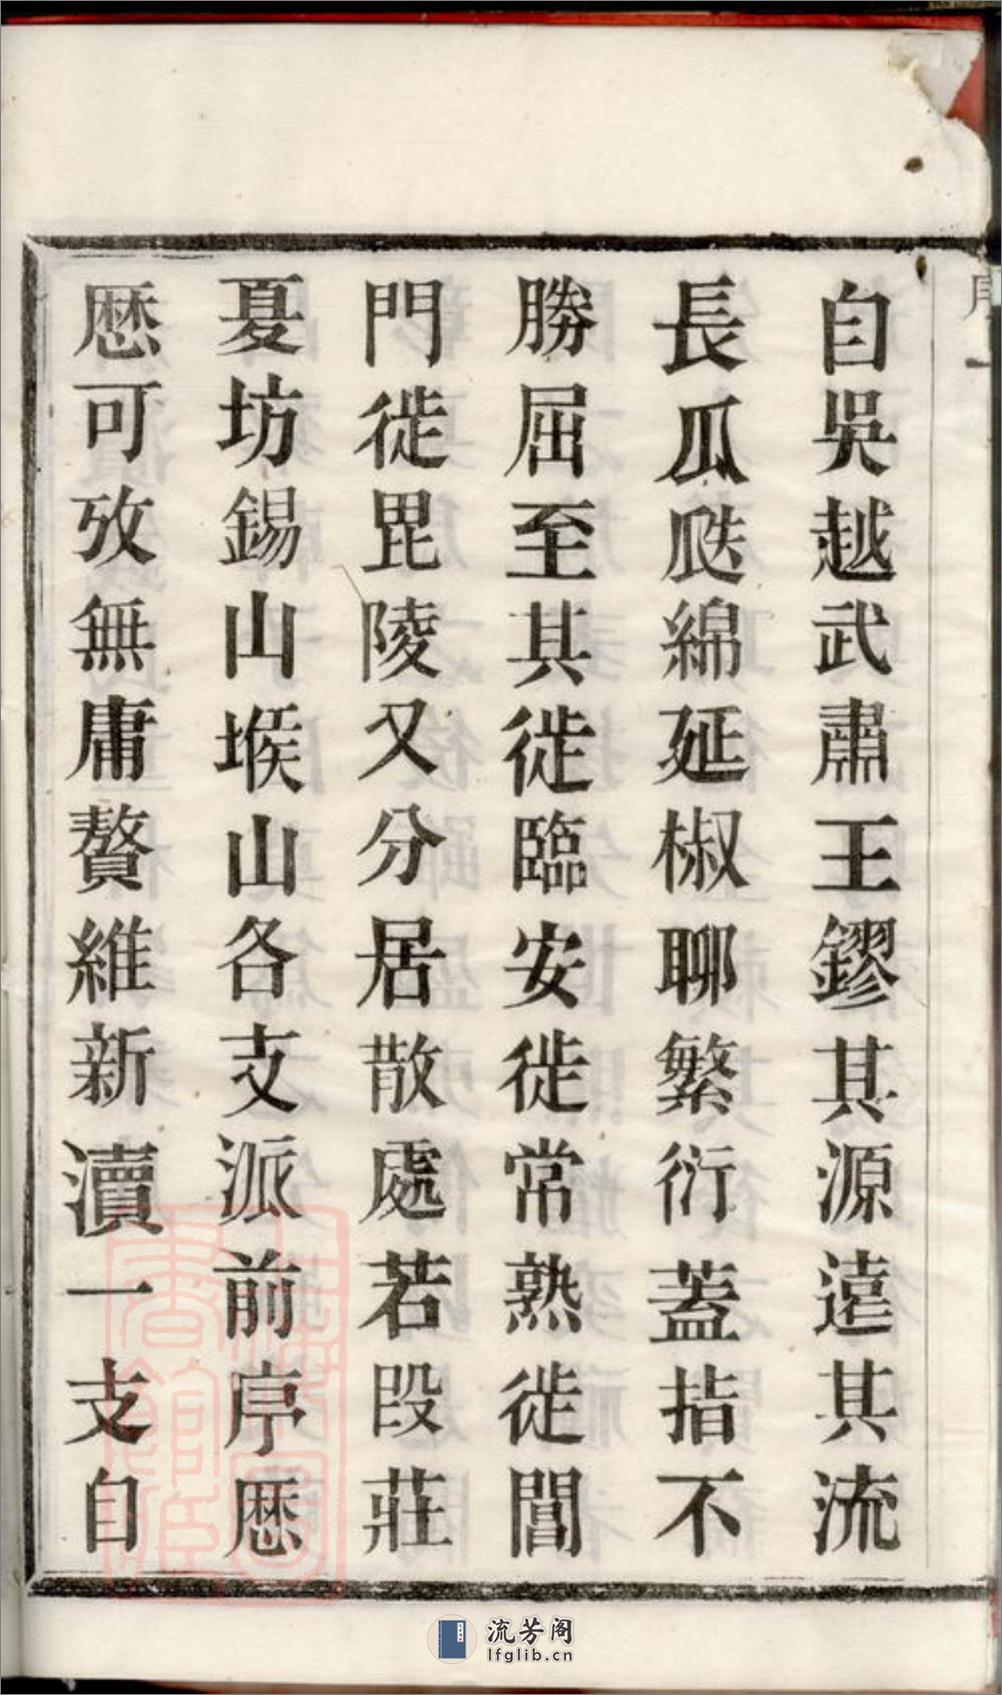 自吳越武肅王鏐其源遠其流
長瓜瓞綿延椒聊繁衍蓋指不
勝屈至其徙臨安徙常熟徙閶
門徙毘陵又分居散處若段莊
夏坊錫山堠山各支派前序歷
歷可攷無庸贅維新瀆一支自
流芳阁
lfglib.cn